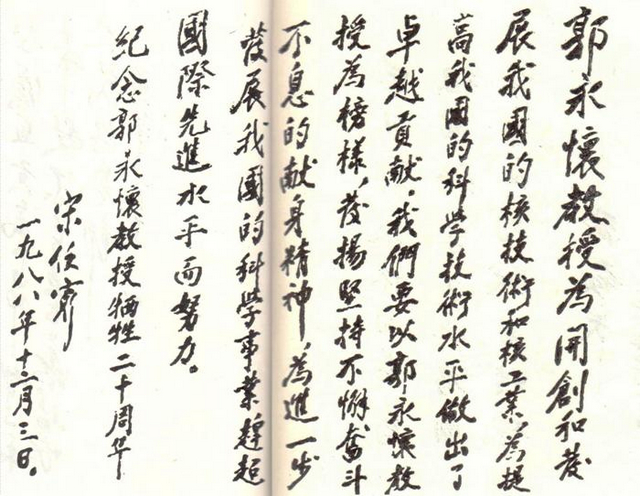 郭永懷教授為開創和發
展我國的核技術和核工業,為提
高我國的科學技術水平做出了
卓越貢献。我們要以郭永懷教
授為榜樣,發揚堅持不懈奮斗
不息的献身精神,為進一步
發展我國的科學事業趕超
國際先進水平而努力。
紀念郭永懷教授牺牲二十周年
宋任窮
一九八八年十二月三日。